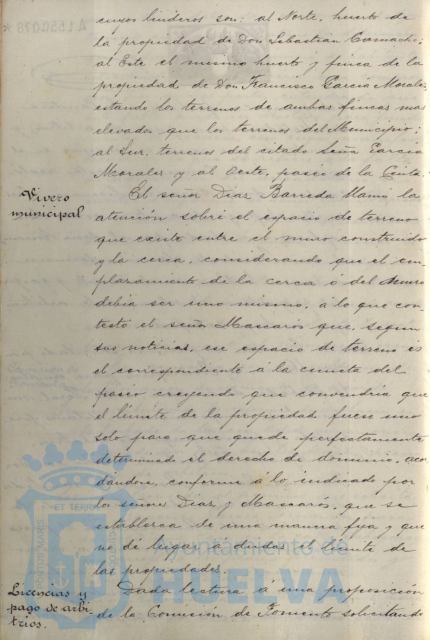 cuyos linderos son: al Norte, huerto de
la propiedad de Don Sebastián Camacho;
al Este el mismo huerto y finca de la
propiedad de Don Francisco García Morales,
estando los terrenos de ambas fincas mas
elevados que los terrenos del Municipio;
al Sur, terrenos del citado Señor García
Morales y al Oeste, paseo de la Cinta.
Vivero
municipal
El señor Diaz Barreda llamó la
atención sobre el espacio de terreno
que existe entre el muro construido
y la cerca, considerando que el em-
plazamiento de la cerca ó del muro
debia ser uno mismo, á lo que con-
testó el señor Mascarós que, según
sus noticias, ese espacio de terreno es
el correspondiente á la cuneta del
paseo creyendo que convendría que
el límite de la propiedad fuese uno
solo para que quede perfectamente
determinado el derecho de dominio, acor-
dandose, conforme á lo indicado por
los señores Diaz y Mascarós, que se
establezca de una manera fija y que
no dé lugar a dudas el límite de
las propiedades.
Licencias y
pago de arbi-
trios.
Dada lectura á una proposición
de la Comisión de Fomento solicitando
ET TERRAE
PORTUS MARIS
Ayuntamiento de
HUELVA